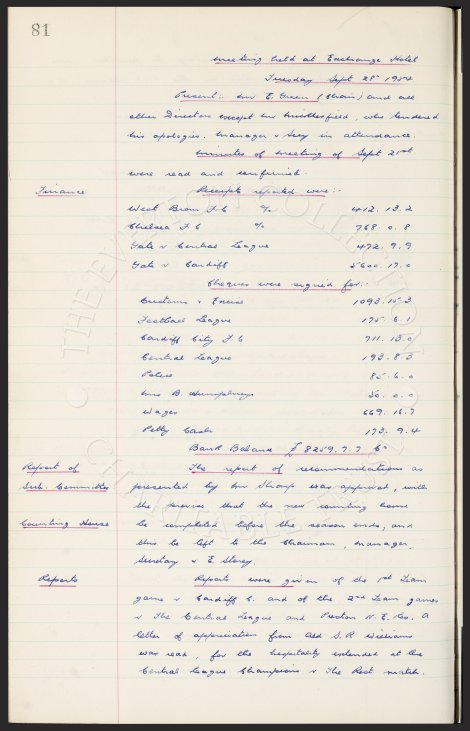 81
Meeting held at Exchange Hotel
Tuesday Sept 28th 1954
Present: Mr E. Green (Chair) and all
other Directors except Mr Micklesfield, who tendered
his apologies. Manager & Secy in attendance.
Minutes of Meeting of Sept 21st
were read and confirmed.
Finance Receipts reported were:-
West Brom F C % 412. 13. 2
Chelsea F C % 768. 0. 8
Gate v Central League 472. 9. 9
Gate v Cardiff 5600. 17. 0
Cheques were signed for:-
Customs & Excise 1093. 15. 3
Football League 175. 6. 1
Cardiff City F C 711. 13. 0
Central League 193. 8. 3
Police 85. 6. 0
Mrs B. Humphreys 50. 0. 0
Wages 669. 16. 7
Petty Cash 173. 9. 4
Bank Balance £8259. 7. 7
Report of The report of recommendations as
Sub. Committee presented by Mr Sharp was approved, with
the proviso that the new counting house
Counting House be completed before the season ends, and
this be left to the Chairman, Manager,
Secretary & E. Storey.
Reports Reports were given of the 1st Team
game v Cardiff C. and of the 2nd Team games
v The Central League and Preston N. E. Res. A
letter of appreciation from Ald S. R. Williams
was read, for the hospitality extended at the
Central League Champions v The Rest match.
© THE EVERTON COLLECTION
CHARITABLE TRUST